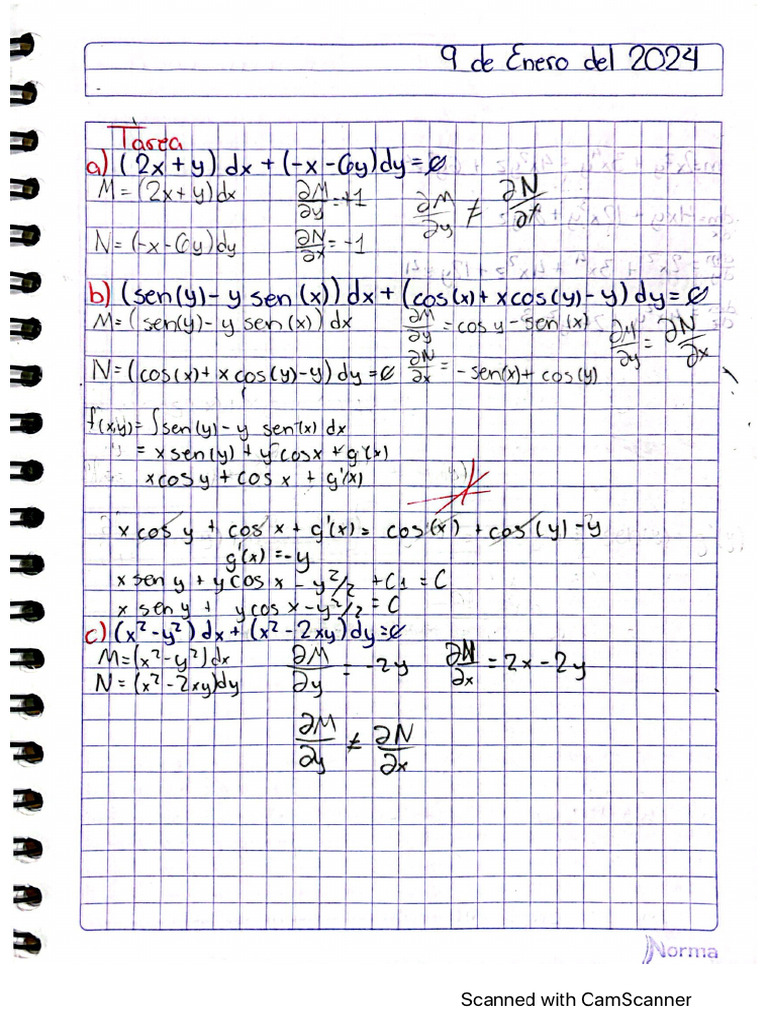 9 de Enero del 2024
Tarea
a) (2x+y) dx + (-x-6y)dy=∅
M=(2x+y)dx ∂M/∂y=+1 ∂M/∂y ≠ ∂N/∂x
N=(-x-6y)dy ∂N/∂x=-1
b) (sen(y)-y sen(x)) dx + (cos(x)+xcos(y)-y) dy=∅
M=(sen(y)-y sen(x)) dx ∂M/∂y=cos y-sen(x) ∂M/∂y = ∂N/∂x
N=(cos(x)+x cos(y)-y)dy=∅ ∂N/∂x=-sen(x)+cos(y)
f(x,y)=∫sen(y)-y sen(x) dx
= x sen(y)+y cosx+g(x)
xcos y+cos x+g'(x)
x cos y + cos x + g'(x)= cos(x) +cos(y)-y
g'(x)=-y
x sen y + y cos x - y²/2 +C1 = C
x sen y + y cos x-y²/2 = C
c) (x²-y²)dx+(x²-2xy)dy=∅
M=(x²-y²)dx ∂M/∂y = -2y ∂N/∂x = 2x-2y
N=(x²-2xy)dy
∂M/∂y ≠ ∂N/∂x
Norma
Scanned with CamScanner